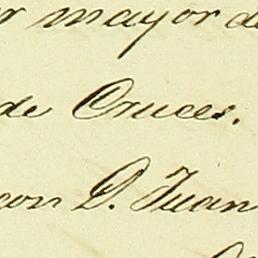 r mayor d
de Cruces.
con D. Juan